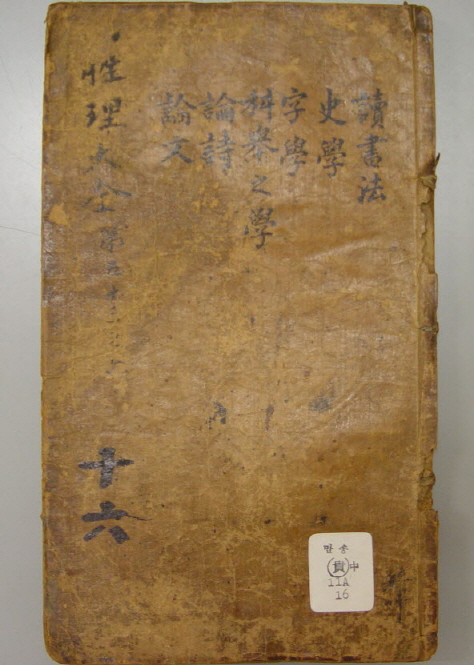 讀書法
史學
字學
科擧之學
論詩
論文
性理大全 第五十
十六
만송
貴 中
11A
16